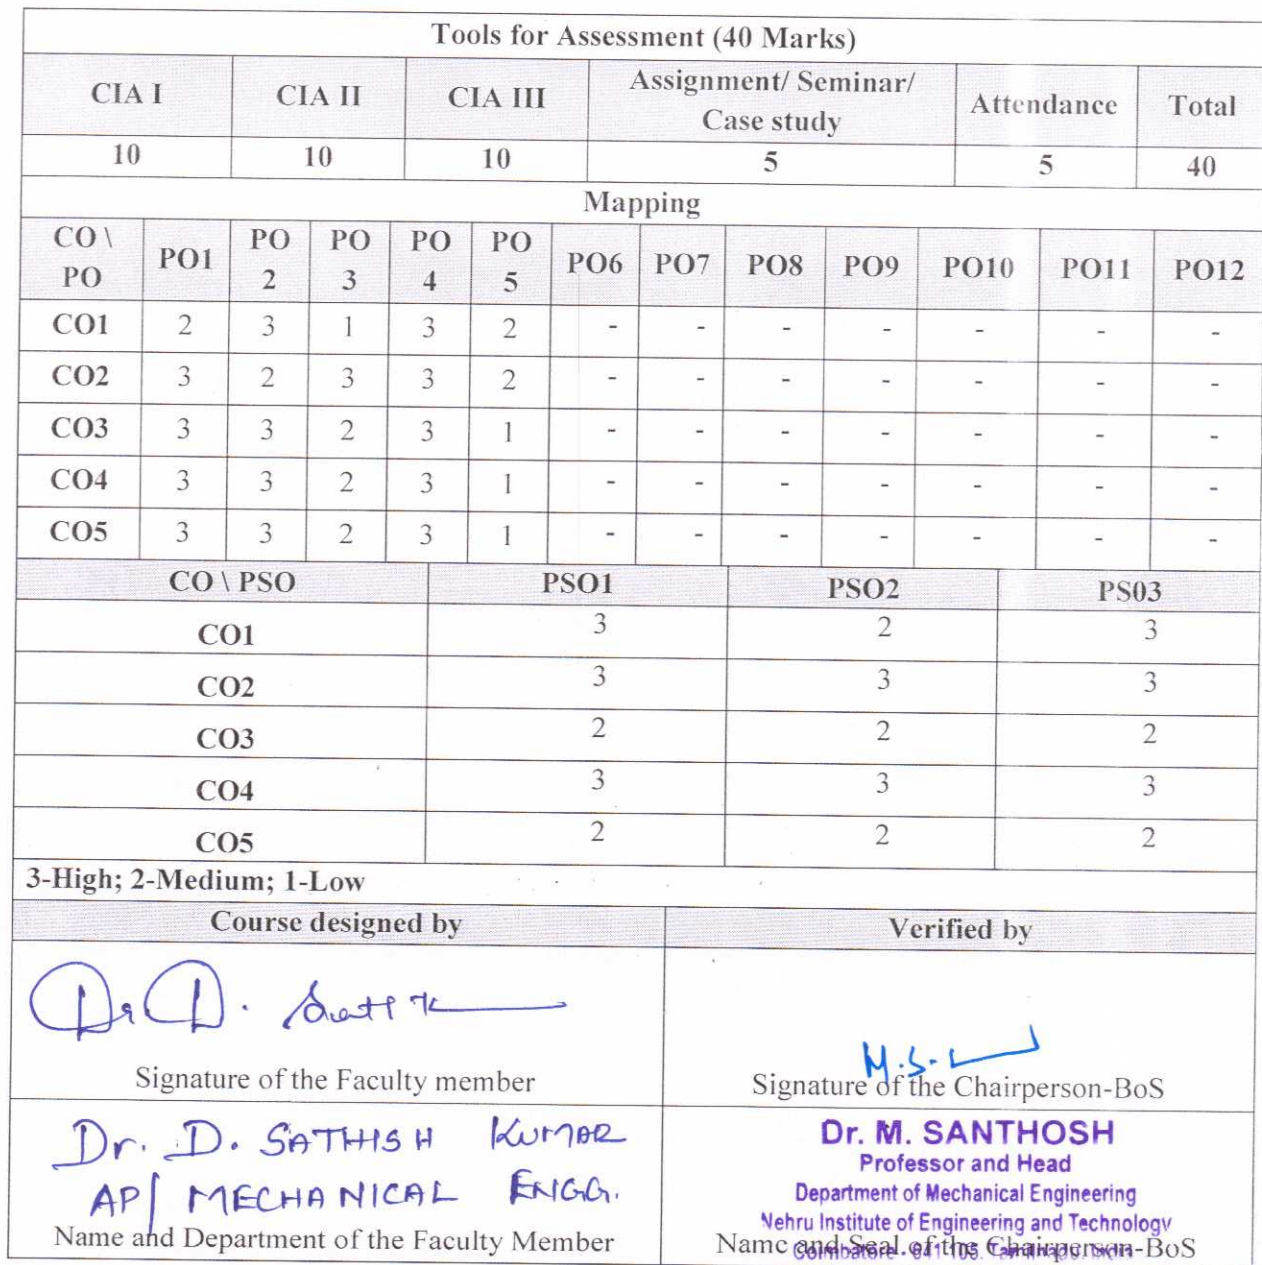 Tools for Assessment (40 Marks)
CIA I CIA II CIA III Assignment/ Seminar/ Case study Attendance Total
10 10 10 5 5 40
Mapping
CO \ PO PO1 PO 2 PO 3 PO 4 PO 5 PO6 PO7 PO8 PO9 PO10 PO11 PO12
CO1 2 3 1 3 2 - - - - - - -
CO2 3 2 3 3 2 - - - - - - -
CO3 3 3 2 3 1 - - - - - - -
CO4 3 3 2 3 1 - - - - - - -
CO5 3 3 2 3 1 - - - - - - -
CO \ PSO PSO1 PSO2 PS03
CO1 3 2 3
CO2 3 3 3
CO3 2 2 2
CO4 3 3 3
CO5 2 2 2
3-High; 2-Medium; 1-Low
Course designed by Verified by
Dr D.
M.S.
Signature of the Faculty member Signature of the Chairperson-BoS
Dr. D. SATHISH KUMAR
AP/ MECHANICAL ENGG.
Name and Department of the Faculty Member
Dr. M. SANTHOSH
Professor and Head
Department of Mechanical Engineering
Nehru Institute of Engineering and Technology
Coimbatore - 641 105.
Name and Seal of the Chairperson-BoS